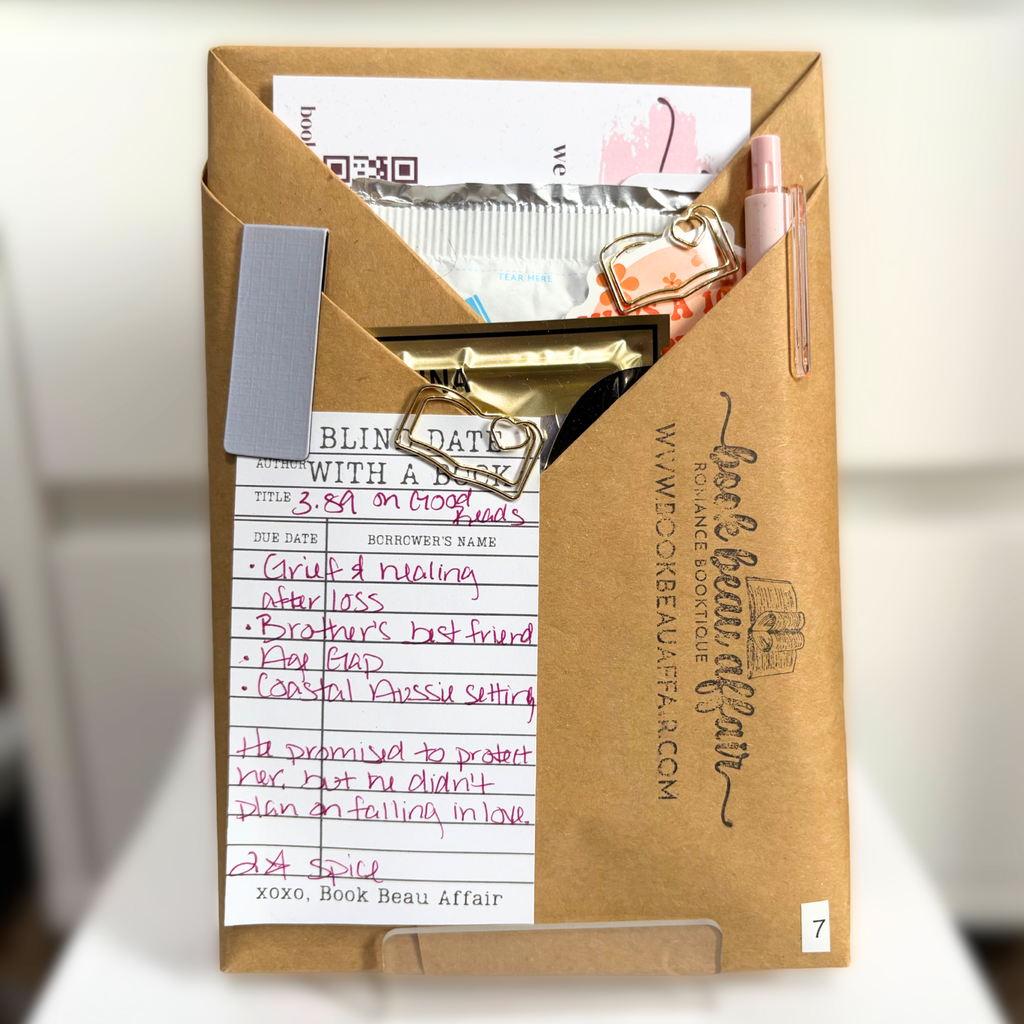 book
we
TEAR HERE
BLIND DATE
AUTHOR
WITH A BOOK
TITLE 3.89 on Good
Reads
DUE DATE BORROWER'S NAME
• Grief & healing
after loss
• Brother's best friend
• Age Gap
• Coastal Aussie setting
He promised to protect
her, but he didn't
plan on falling in love.
2☆ Spice
xoxo, Book Beau Affair
book beau affair
ROMANCE BOOKTIQUE
WWW.BOOKBEAUAFFAIR.COM
7